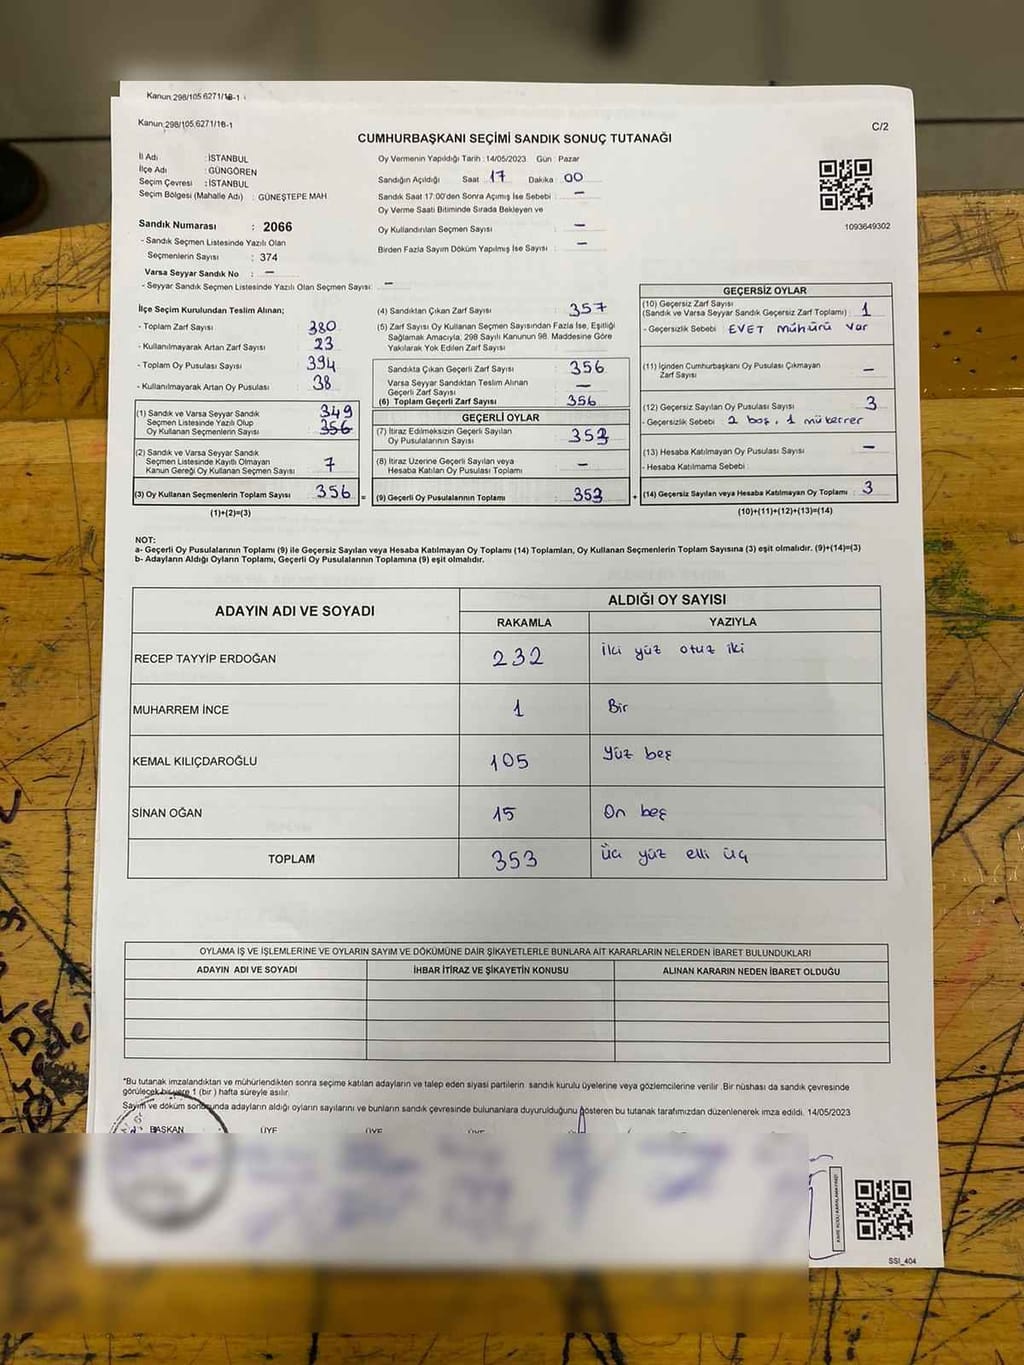 Kanun 298/105 6271/18-1
Kanun 298/105 6271/18-1
CUMHURBAŞKANI SEÇİMİ SANDIK SONUÇ TUTANAĞI
C/2
İl Adı : İSTANBUL
İlçe Adı : GÜNGÖREN
Seçim Çevresi : İSTANBUL
Seçim Bölgesi (Mahalle Adı) : GÜNEŞTEPE MAH
Sandık Numarası : 2066
- Sandık Seçmen Listesinde Yazılı Olan
Seçmenlerin Sayısı : 374
Varsa Seyyar Sandık No : –
- Seyyar Sandık Seçmen Listesinde Yazılı Olan Seçmen Sayısı: –
Oy Vermenin Yapıldığı Tarih : 14/05/2023 Gün : Pazar
Sandığın Açıldığı Saat 17 Dakika 00
Sandık Saat 17:00'den Sonra Açımış İse Sebebi : –
Oy Verme Saati Bitiminde Sırada Bekleyen ve
Oy Kullandırılan Seçmen Sayısı : –
Birden Fazla Sayım Döküm Yapılmış İse Sayısı : –
1093649302
İlçe Seçim Kurulundan Teslim Alınan;
- Toplam Zarf Sayısı : 380
- Kullanılmayarak Artan Zarf Sayısı : 23
- Toplam Oy Pusulası Sayısı : 394
- Kullanılmayarak Artan Oy Pusulası : 38
(1) Sandık ve Varsa Seyyar Sandık 349
Seçmen Listesinde Yazılı Olup
Oy Kullanan Seçmenlerin Sayısı : 356
(2) Sandık ve Varsa Seyyar Sandık
Seçmen Listesinde Kayıtlı Olmayan
Kanun Gereği Oy Kullanan Seçmen Sayısı : 7
(3) Oy Kullanan Seçmenlerin Toplam Sayısı : 356 =
(1)+(2)=(3)
(4) Sandıktan Çıkan Zarf Sayısı : 357
(5) Zarf Sayısı Oy Kullanan Seçmen Sayısından Fazla İse, Eşitliği
Sağlamak Amacıyla, 298 Sayılı Kanunun 98. Maddesine Göre
Yakılarak Yok Edilen Zarf Sayısı :
Sandıkta Çıkan Geçerli Zarf Sayısı : 356
Varsa Seyyar Sandıktan Teslim Alınan
Geçerli Zarf Sayısı : –
(6) Toplam Geçerli Zarf Sayısı : 356
GEÇERLİ OYLAR
(7) İtiraz Edilmeksizin Geçerli Sayılan
Oy Pusulalarının Sayısı : 353
(8) İtiraz Üzerine Geçerli Sayılan veya
Hesaba Katılan Oy Pusulası Toplamı : –
(9) Geçerli Oy Pusulalarının Toplamı : 353 +
GEÇERSİZ OYLAR
(10) Geçersiz Zarf Sayısı
(Sandık ve Varsa Seyyar Sandık Geçersiz Zarf Toplamı) : 1
- Geçersizlik Sebebi : EVET MÜHÜRÜ var
(11) İçinden Cumhurbaşkanı Oy Pusulası Çıkmayan
Zarf Sayısı : –
(12) Geçersiz Sayılan Oy Pusulası Sayısı : 3
- Geçersizlik Sebebi : 2 boş, 1 mükerrer
(13) Hesaba Katılmayan Oy Pusulası Sayısı : –
- Hesaba Katılmama Sebebi :
(14) Geçersiz Sayılan veya Hesaba Katılmayan Oy Toplamı : 3
(10)+(11)+(12)+(13)=(14)
NOT:
a- Geçerli Oy Pusulalarının Toplamı (9) ile Geçersiz Sayılan veya Hesaba Katılmayan Oy Toplamı (14) Toplamları, Oy Kullanan Seçmenlerin Toplam Sayısına (3) eşit olmalıdır. (9)+(14)=(3)
b- Adayların Aldığı Oyların Toplamı, Geçerli Oy Pusulalarının Toplamına (9) eşit olmalıdır.
ADAYIN ADI VE SOYADI
ALDIĞI OY SAYISI
RAKAMLA YAZIYLA
RECEP TAYYİP ERDOĞAN 232 İki yüz otuz iki
MUHARREM İNCE 1 Bir
KEMAL KILIÇDAROĞLU 105 Yüz beş
SİNAN OĞAN 15 On beş
TOPLAM 353 Üç yüz elli üç
OYLAMA İŞ VE İŞLEMLERİNE VE OYLARIN SAYIM VE DÖKÜMÜNE DAİR ŞİKAYETLERLE BUNLARA AİT KARARLARIN NELERDEN İBARET BULUNDUKLARI
ADAYIN ADI VE SOYADI İHBAR İTİRAZ VE ŞİKAYETİN KONUSU ALINAN KARARIN NEDEN İBARET OLDUĞU
*Bu tutanak imzalandıktan ve mühürlendikten sonra seçime katılan adayların ve talep eden siyasi partilerin sandık kurulu üyelerine veya gözlemcilerine verilir. Bir nüshası da sandık çevresinde
görülecek bir yere 1 (bir) hafta süreyle asılır.
Sayım ve döküm sonucunda adayların aldığı oyların sayılarını ve bunların sandık çevresinde bulunanlara duyurulduğunu gösteren bu tutanak tarafımızdan düzenlenerek imza edildi. 14/05/2023
BAŞKAN ÜYE ÜYE ÜYE
SSI_404